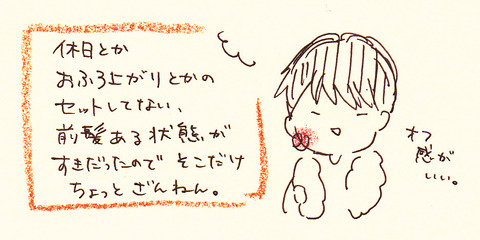 休日とか
おふろ上がりとかの
セットしてない、
前髪ある状態が
すきだったので そこだけ
ちょっと ざんねん。
オフ
感が
いい。